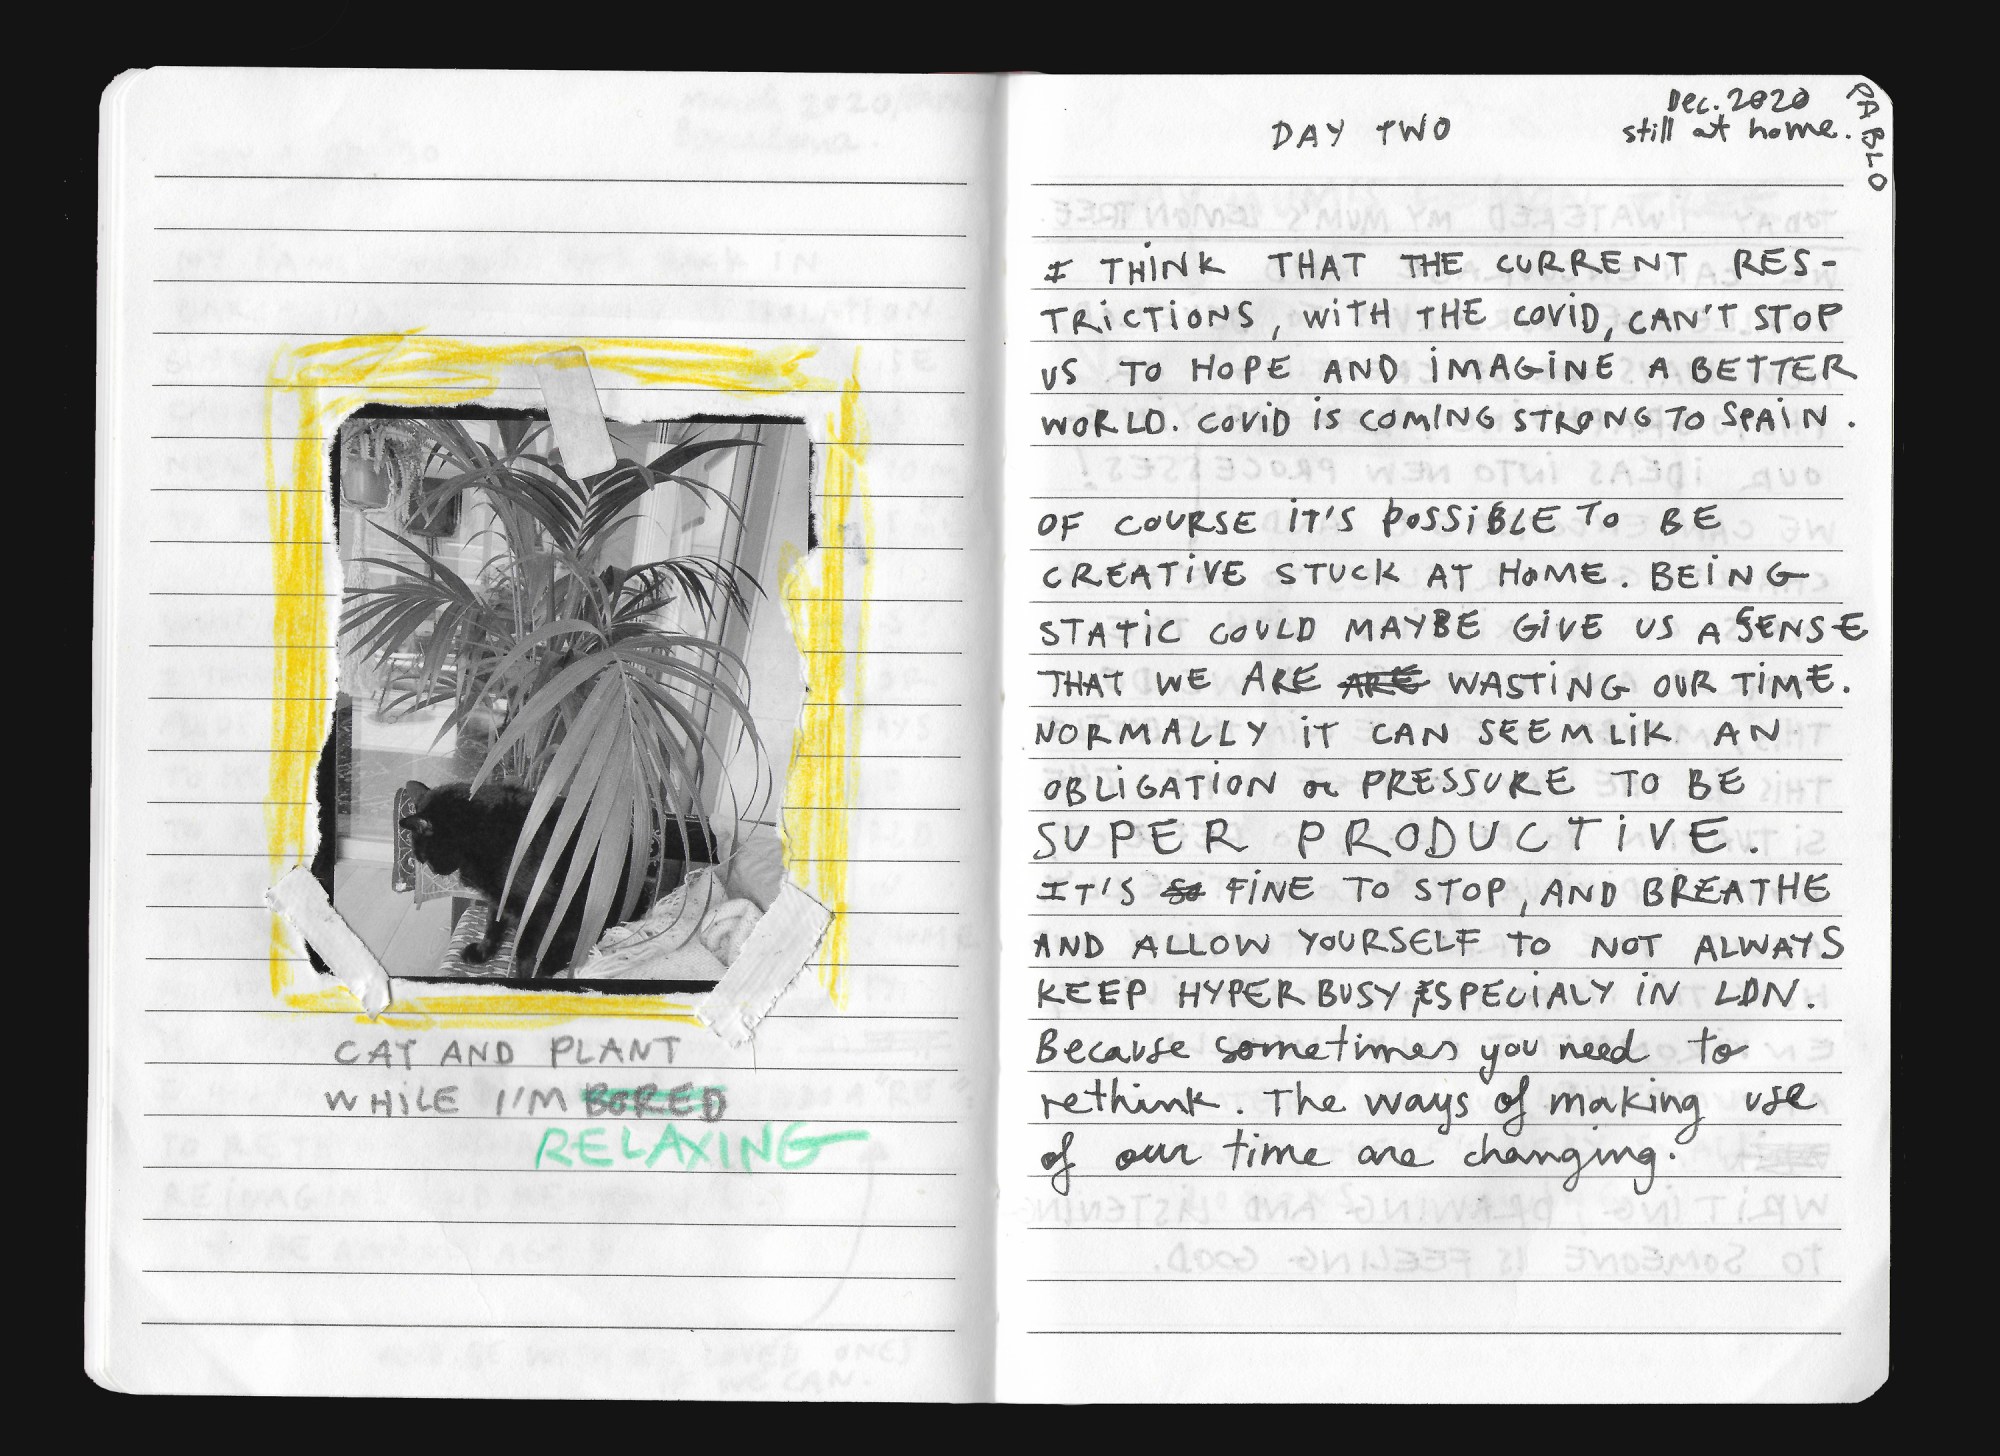 CAT AND PLANT
WHILE I'M BORED
RELAXING
DAY TWO
Dec. 2020
still at home.
PABLO
I THINK THAT THE CURRENT RES-
TRICTIONS, WITH THE COVID, CAN'T STOP
US TO HOPE AND IMAGINE A BETTER
WORLD. COVID IS COMING STRONG TO SPAIN.
OF COURSE IT'S POSSIBLE TO BE
CREATIVE STUCK AT HOME. BEING
STATIC COULD MAYBE GIVE US A SENSE
THAT WE ARE ARE WASTING OUR TIME.
NORMALLY IT CAN SEEM LIK AN
OBLIGATION or PRESSURE TO BE
SUPER PRODUCTIVE.
IT'S so FINE TO STOP, AND BREATHE
AND ALLOW YOURSELF TO NOT ALWAYS
KEEP HYPER BUSY, ESPECIALY IN LDN.
Because sometimes you need to
rethink. The ways of making use
of our time are changing.